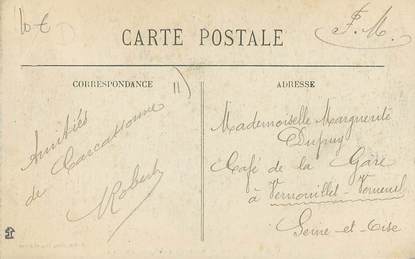 10 €
F. M.
CARTE POSTALE
CORRESPONDANCE
11)
ADRESSE
Amitiés
de Carcassonne
Robert
Mademoiselle Marguerite
Dupuy
Café de la Gare
à Vernouillet-Verneuil
Seine-et-Oise